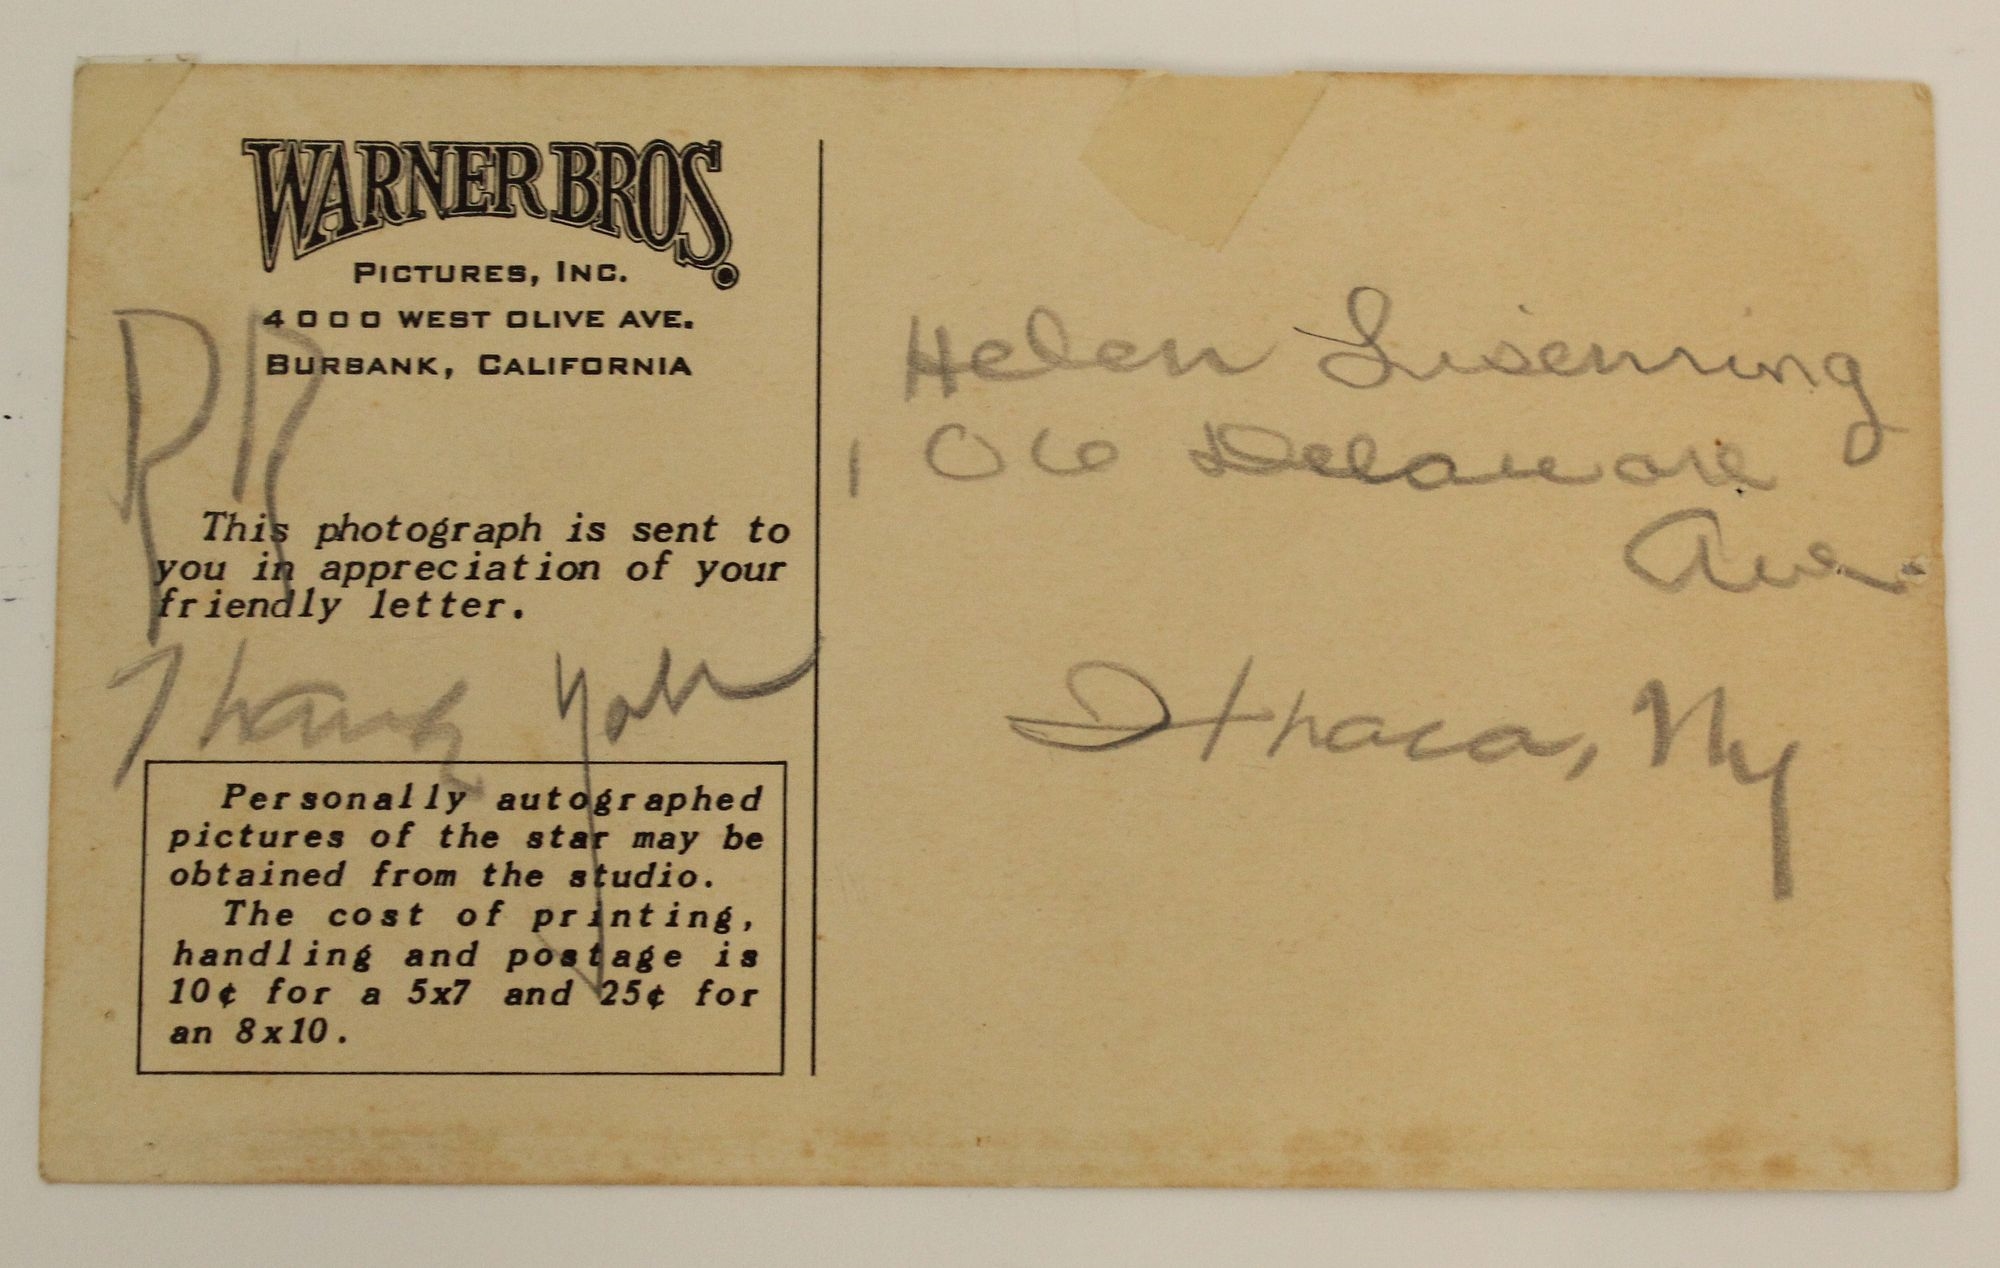 WARNER BROS.
PICTURES, INC.
4000 WEST OLIVE AVE.
BURBANK, CALIFORNIA
This photograph is sent to
you in appreciation of your
friendly letter.
Thank You
Personally autographed
pictures of the star may be
obtained from the studio.
The cost of printing,
handling and postage is
10¢ for a 5x7 and 25¢ for
an 8x10.
Helen Lisenring
106 Delaware
Ave
Ithaca, Ny